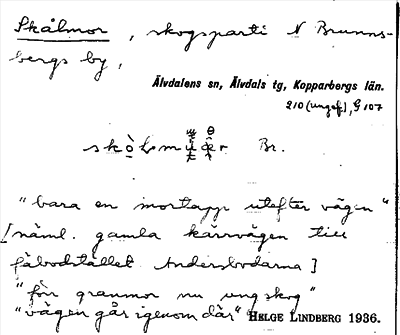 Skålmor, skogsparti N Brunns-
bergs by,
Älvdalens sn, Älvdals tg, Kopparbergs län.
210 (ungef), G 107
Br.
"bara en mortapp utefter vägen"
[näml. gamla kärrvägen till
fäbodstället Andersbodarna]
"för granmor nu ungskog"
"vägen går igenom där" HELGE LINDBERG 1936.